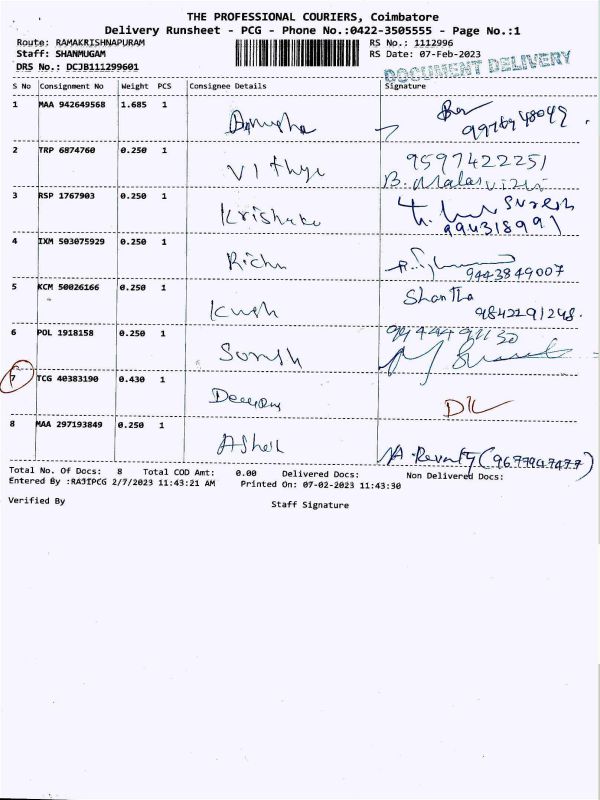 THE PROFESSIONAL COURIERS, Coimbatore
Delivery Runsheet - PCG - Phone No.:0422-3505555 - Page No.:1
Route: RAMAKRISHNAPURAM RS No.: 1112996
Staff: SHANMUGAM RS Date: 07-Feb-2023
DRS No.: DCJB111299601 DOCUMENT DELIVERY
S No Consignment No Weight PCS Consignee Details Signature
1 MAA 942649568 1.685 1
2 TRP 6874760 0.250 1 Vithya 9597422251
B. Malarvizhi
3 RSP 1767903 0.250 1 Suresh
994318991
4 IXM 503075929 0.250 1 Richu
9443849007
5 KCM 50026166 0.250 1 Shantha
9842291248.
6 POL 1918158 0.250 1
7 TCG 40383190 0.430 1
8 MAA 297193849 0.250 1 A. Revathy (9677947477)
Total No. Of Docs: 8 Total COD Amt: 0.00 Delivered Docs: Non Delivered Docs:
Entered By :RAJIPCG 2/7/2023 11:43:21 AM Printed On: 07-02-2023 11:43:30
Verified By Staff Signature